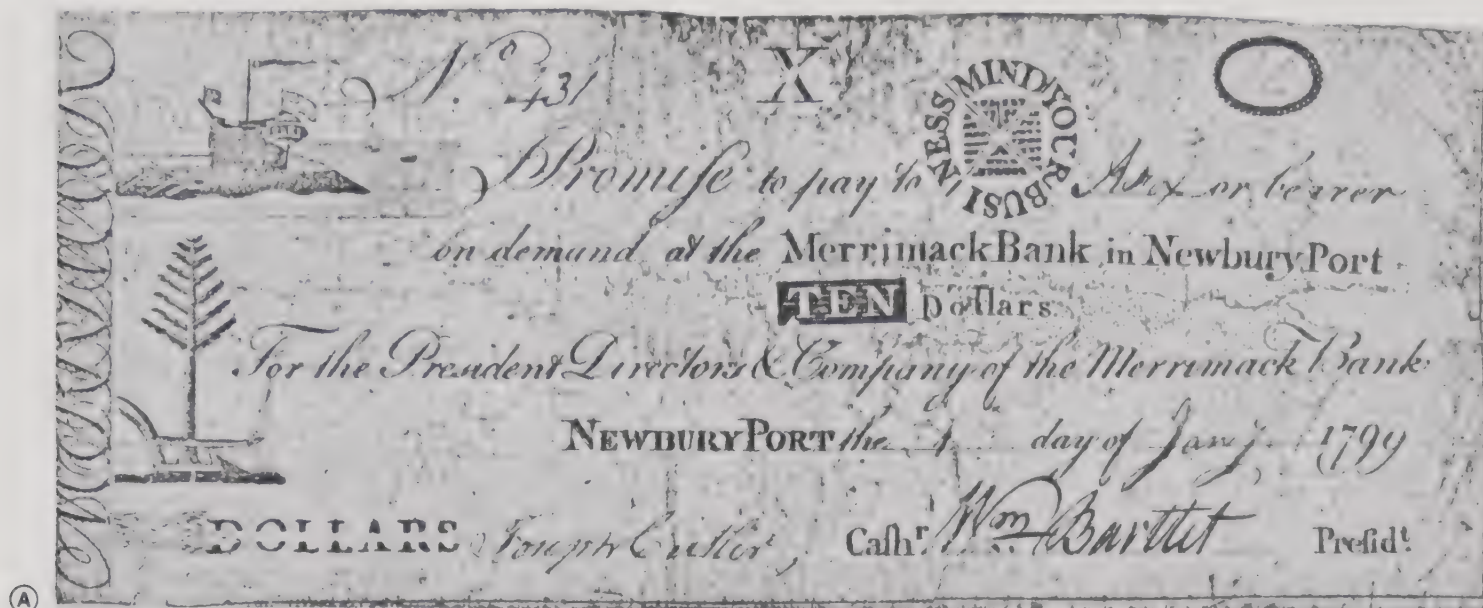 No. 431
X
MIND YOUR BUSINESS
I Promise to pay to or bearer
on demand at the Merrimack Bank in NewburyPort
TEN Dollars
For the President Directors & Company of the Merrimack Bank
NEWBURYPORT the 1 day of Jany. 1799
DOLLARS Joseph Cutler, Cashr. Wm Bartlet Presidt.
A